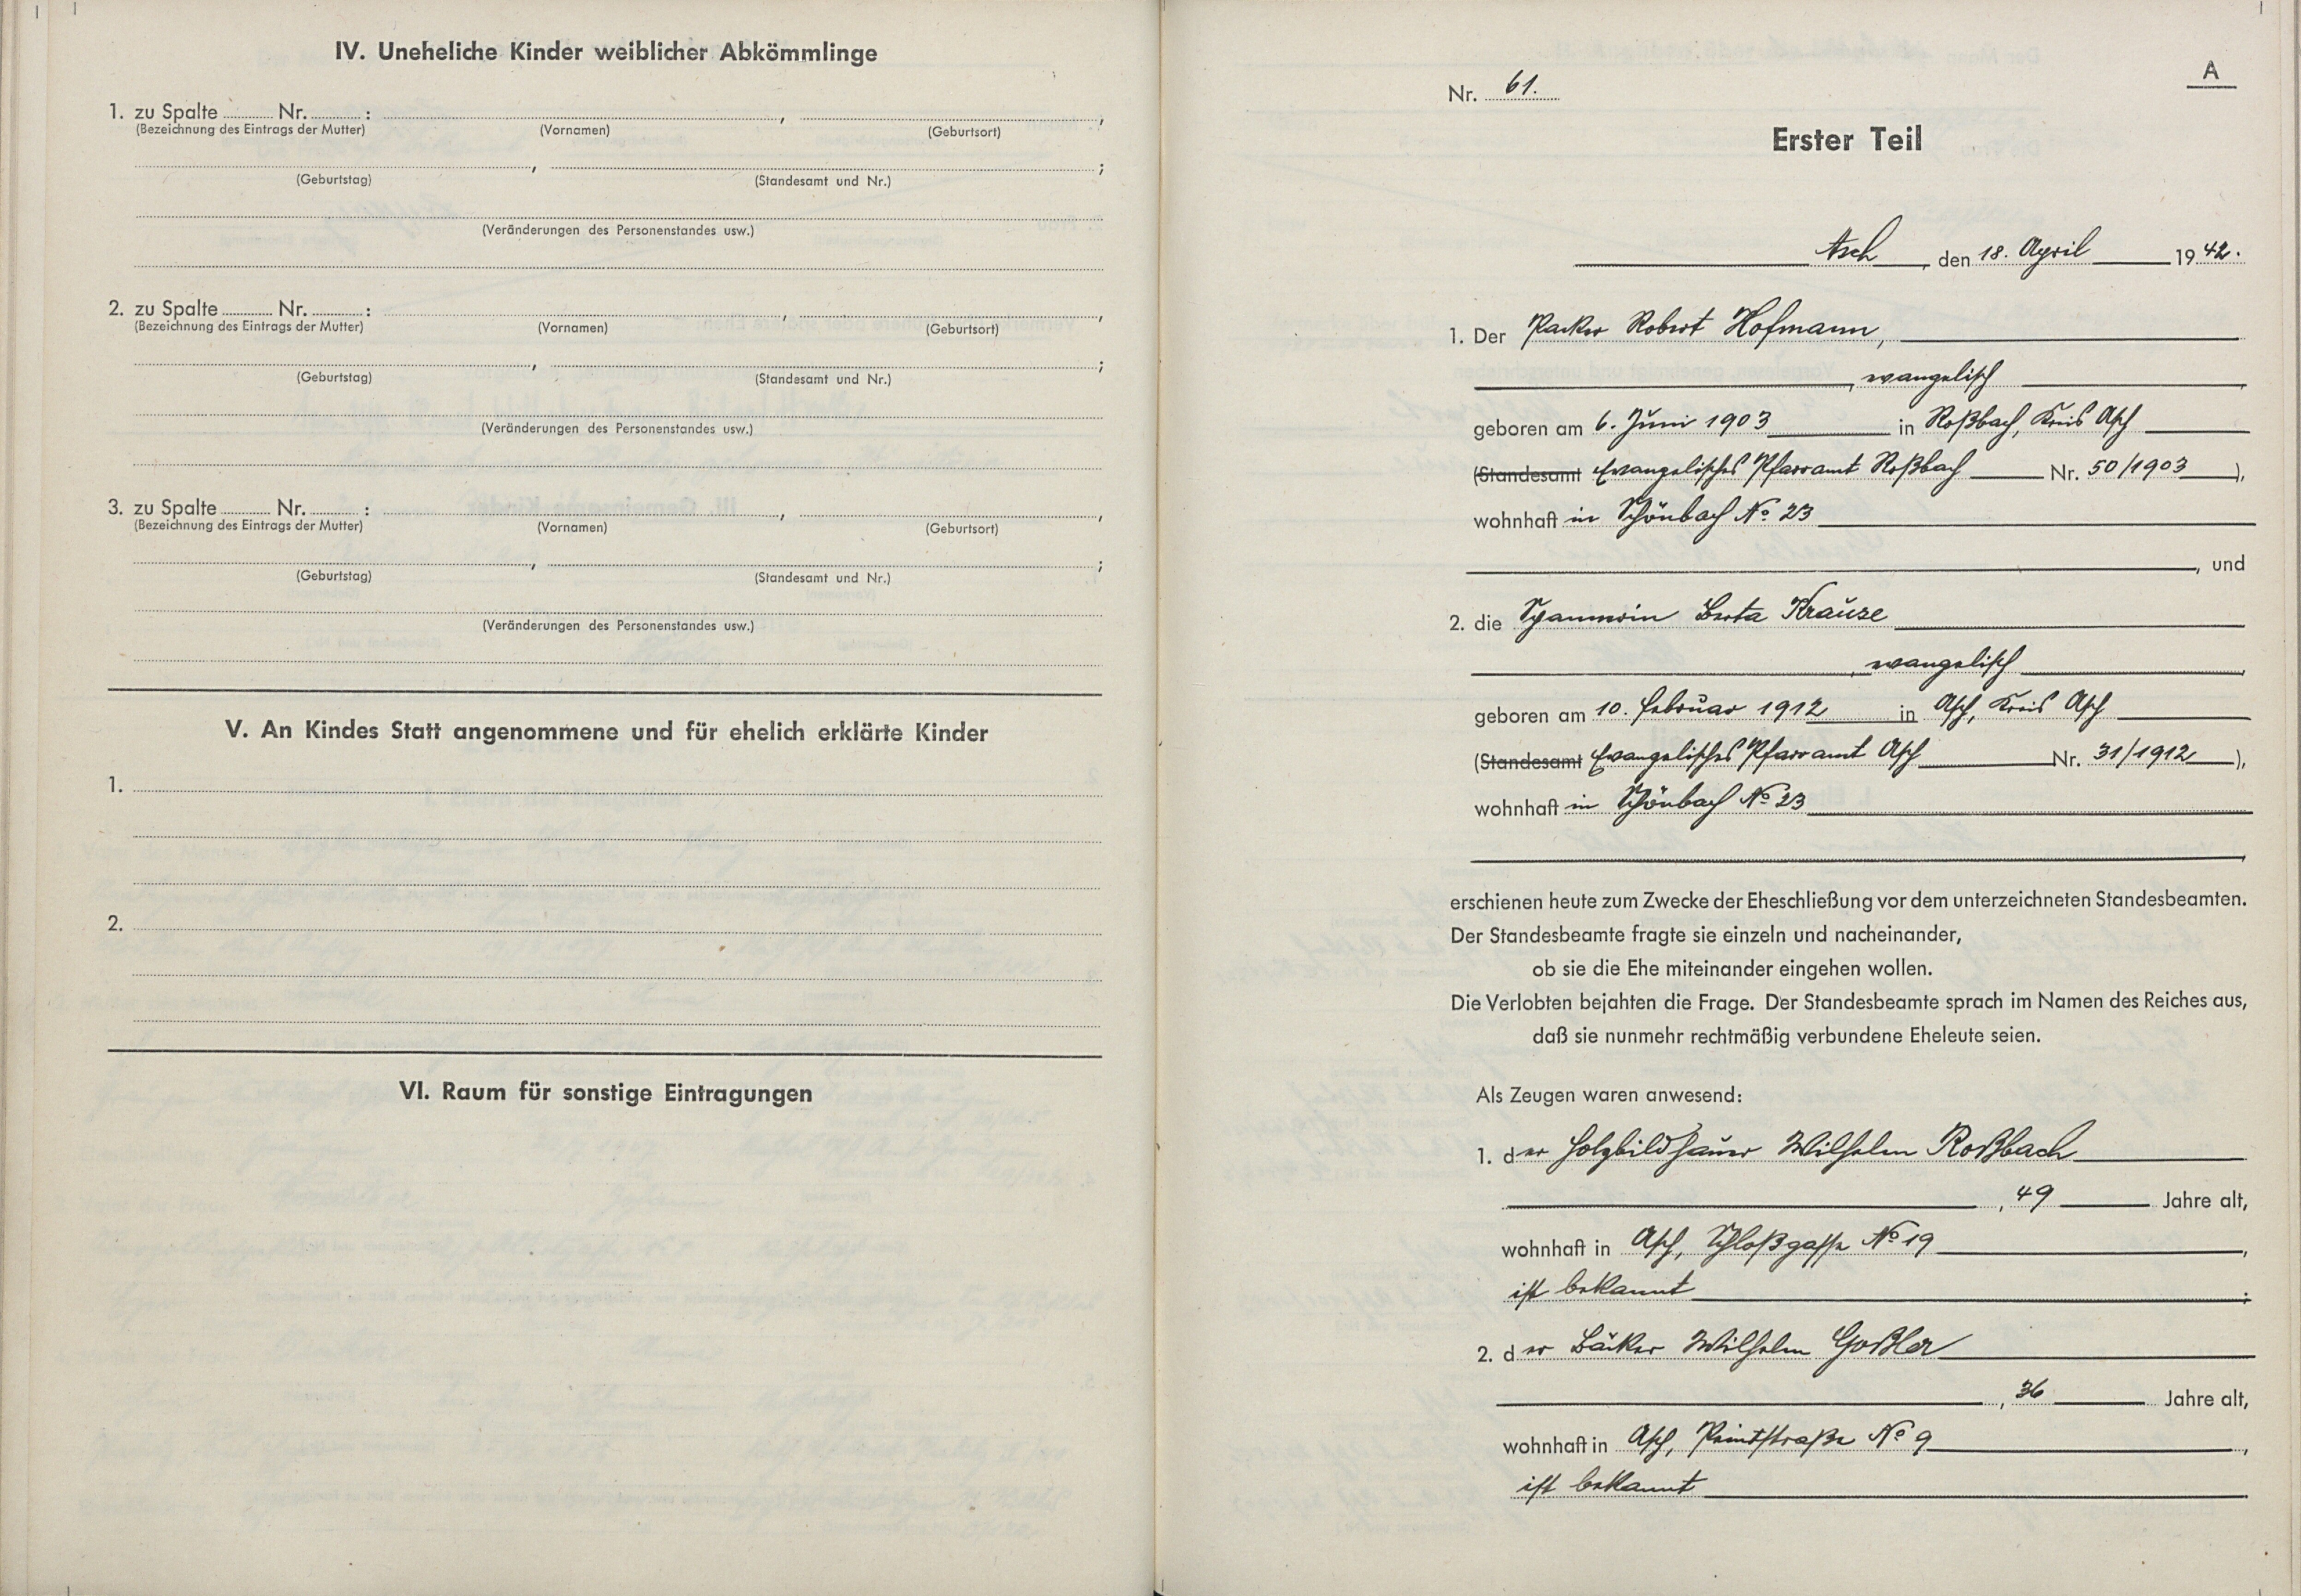 IV. Uneheliche Kinder weiblicher Abkömmlinge
1. zu Spalte ........ Nr. ........ : ........ , ........ ,
(Bezeichnung des Eintrags der Mutter) (Vornamen) (Geburtsort)
........ , ........ ;
(Geburtstag) (Standesamt und Nr.)
(Veränderungen des Personenstandes usw.)
2. zu Spalte ........ Nr. ........ : ........ , ........ ,
(Bezeichnung des Eintrags der Mutter) (Vornamen) (Geburtsort)
........ , ........ ;
(Geburtstag) (Standesamt und Nr.)
(Veränderungen des Personenstandes usw.)
3. zu Spalte ........ Nr. ........ : ........ , ........ ,
(Bezeichnung des Eintrags der Mutter) (Vornamen) (Geburtsort)
........ , ........ ;
(Geburtstag) (Standesamt und Nr.)
(Veränderungen des Personenstandes usw.)
V. An Kindes Statt angenommene und für ehelich erklärte Kinder
1.
2.
VI. Raum für sonstige Eintragungen
A
Nr. 61.
Erster Teil
Asch, den 18. April 1942.
1. Der Packer Robert Hofmann,
, evangelisch
geboren am 6. Juni 1903 in Roßbach, Kreis Asch
(Standesamt Evangelisches Pfarramt Roßbach Nr. 50/1903),
wohnhaft in Schönbach No 23
, und
2. die Spannerin Berta Krauze
, evangelisch
geboren am 10. Februar 1912 in Asch, Kreis Asch
(Standesamt Evangelisches Pfarramt Asch Nr. 31/1912),
wohnhaft in Schönbach No 23
erschienen heute zum Zwecke der Eheschließung vor dem unterzeichneten Standesbeamten.
Der Standesbeamte fragte sie einzeln und nacheinander,
ob sie die Ehe miteinander eingehen wollen.
Die Verlobten bejahten die Frage. Der Standesbeamte sprach im Namen des Reiches aus,
daß sie nunmehr rechtmäßig verbundene Eheleute seien.
Als Zeugen waren anwesend:
1. der Holzbildhauer Wilhelm Roßbach
, 49 Jahre alt,
wohnhaft in Asch, Schloßgasse No 19,
ist bekannt ;
2. der Bäcker Wilhelm Goßler
, 36 Jahre alt,
wohnhaft in Asch, Peintstraße No 9,
ist bekannt